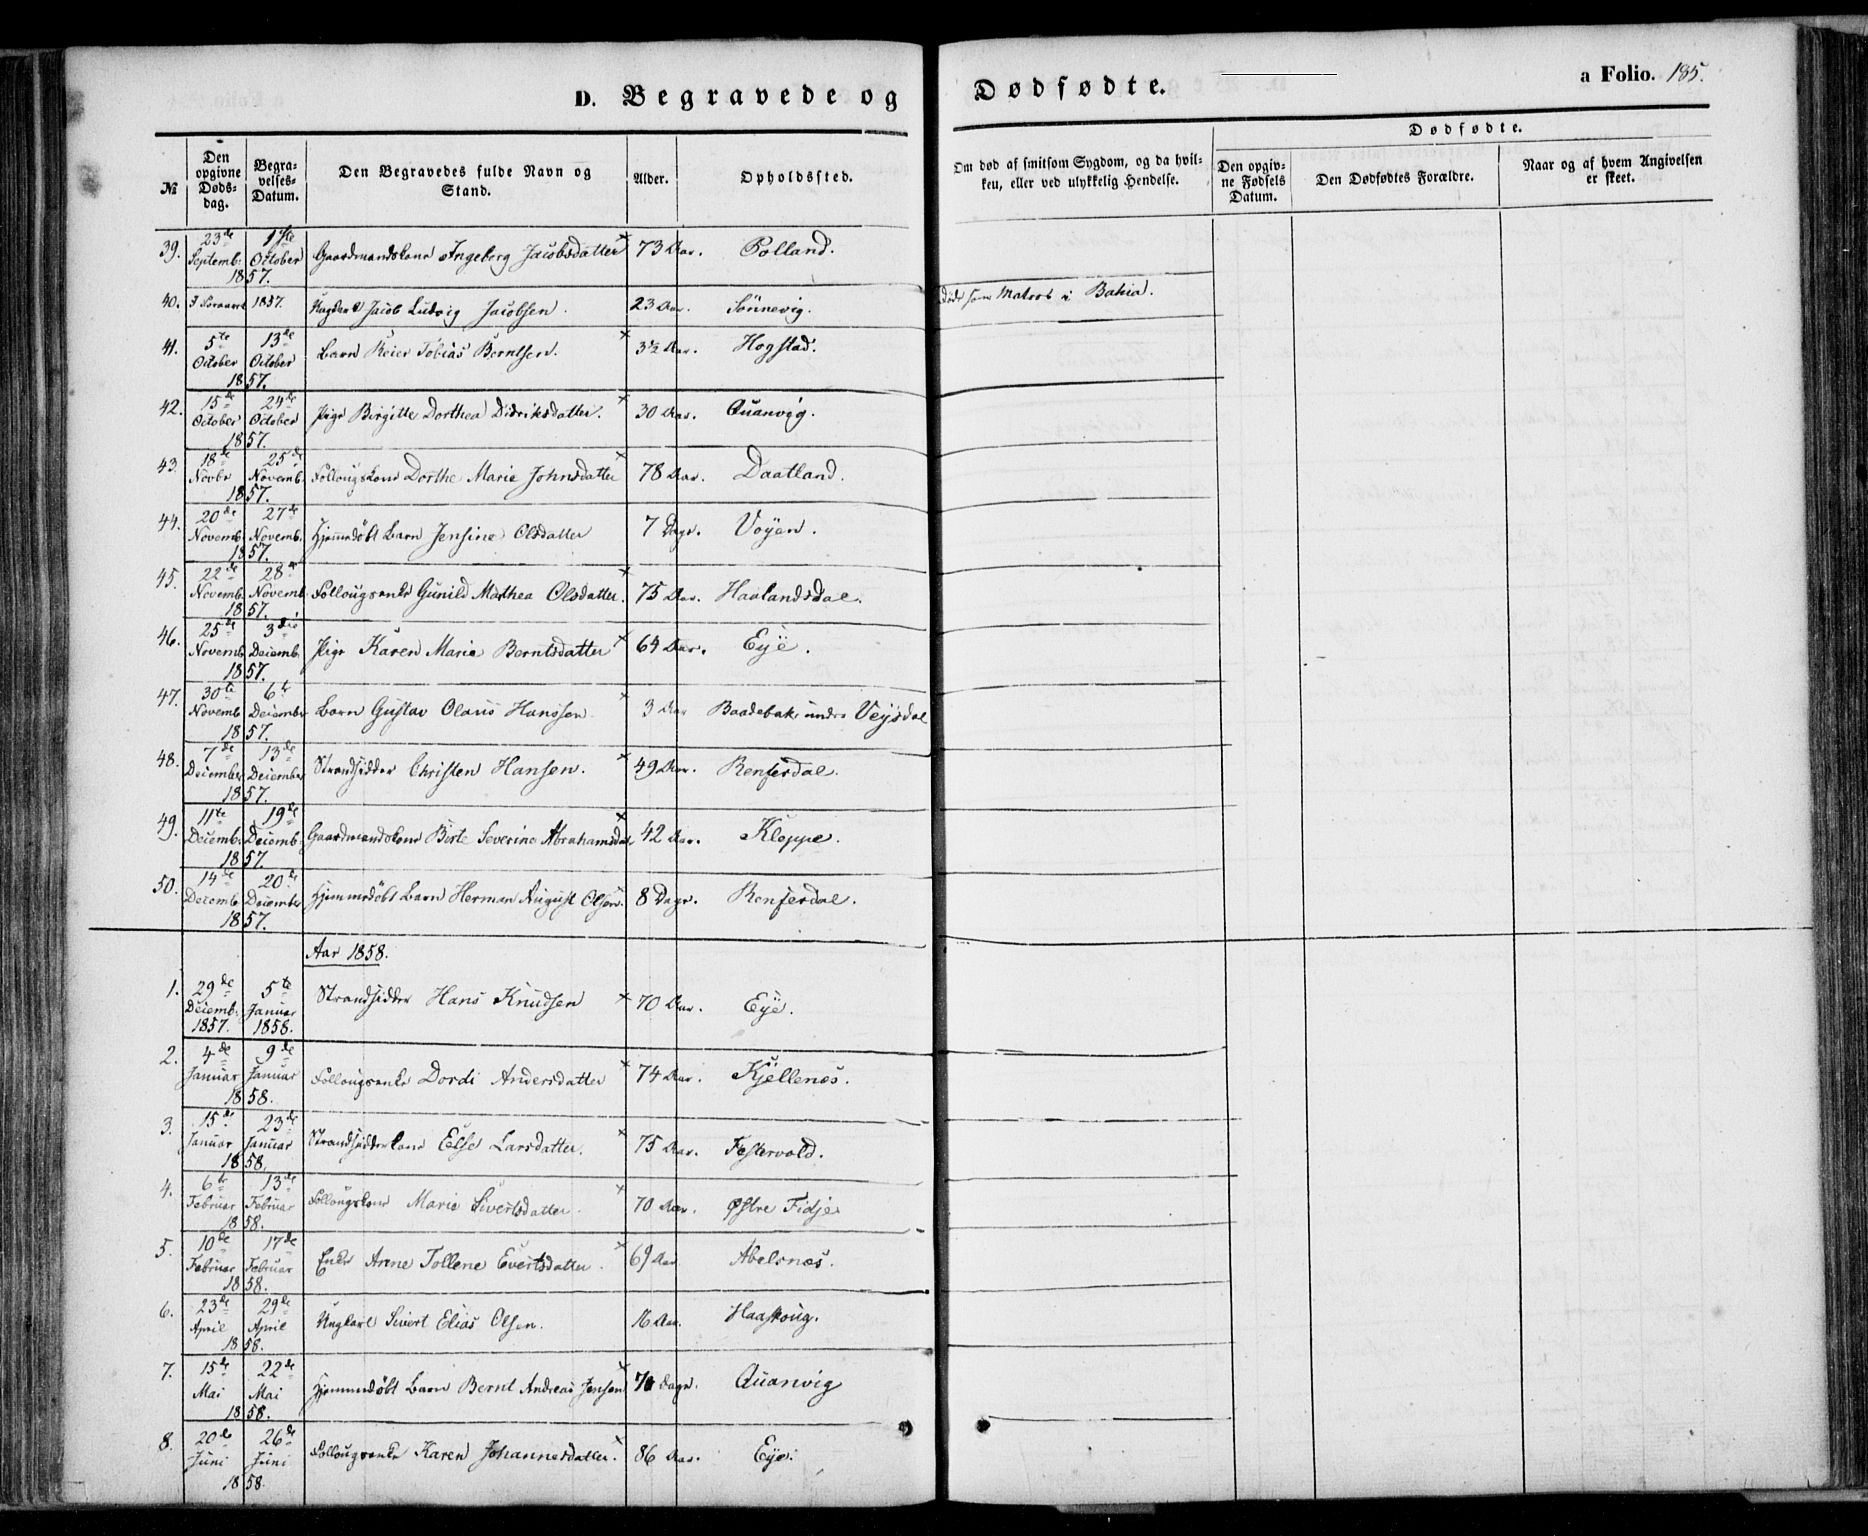 D. Begravede og Dødfødte. a Folio. 185.
No
Den opgivne Døds-dag.
Begra-velses-Datum.
Den Begravedes fulde Navn og Stand.
Alder.
Opholdssted.
Om død af smitsom Sygdom, og da hvil-ken, eller ved ulykkelig Hendelse.
Dødfødte.
Den opgiv-ne Fødsels Datum.
Den Dødfødtes Forældre.
Naar og af hvem Angivelsen er skeet.
39. 23de Septemb: 1ste October 1857. Gaardmandskone Ingeborg Jacobsdatter 73 Aar. Polland.
40. 1857. Ungkarl Jacob Ludvig Jacobsen. 23 Aar. Sönnevig. døde som Matros i Bahia.
41. 5te October 13de October 1857. Barn Reier Tobias Berntsen. 3½ Aar. Hogstad.
42. 15de October 24de October 1857. Pige Birgitte Dorthea Didriksdatter. 30 Aar. Quanvig.
43. 18de Novbr 25de Novemb. 1857. Follougskone Dorthe Marie Johnsdatter 78 Aar. Daatland.
44. 20de Novemb. 27de Novemb. 1857. Hjemmedöbt Barn Jensine Olsdatter 7 Dage. Vöyen.
45. 22de Novemb. 28de Novemb. 1857. Follougsenke Gunild Mathea Olsdatter. 75 Aar. Haalandsdal.
46. 25de Novemb. 3die Decemb. 1857. Pige Karen Marie Berntsdatter 64 Aar. Eye.
47. 30te Novemb. 6te December 1857. Barn Gustav Olaus Hanssen. 3 Aar Baadebak: under Veysdal
48. 7de December 13de December 1857. Strandsidder Christen Hansen. 49 Aar. Renfersdal.
49. 11te Decemb: 19de Decemb: 1857. Gaardmandskone Birte Severine Abrahamsdat 42 Aar. Kloppe.
50. 14de Decemb. 20de December 1857. Hjemmedöbt Barn Herman August Olsen. 8 Dage. Renfersdal.
Aar 1858.
1. 29de Decemb: 1857. 5te Januar 1858. Strandsidder Hans Knudsen 70 Aar. Eye.
2. 4de Januar 9de Januar 1858. Follougsenke Dordi Andersdatter 74 Aar. Kjellenæs.
3. 15de Januar 23de Januar 1858. Strandsidderkone Else Larsdatter. 75 Aar. Festervold.
4. 6te Februar 13de Februar 1858. Follougskone Marie Sivertsdatter. 70 Aar. Østre Fidje
5. 10de Februar 17de Februar 1858. Enke Anne Tollene Evertsdatter. 69 Aar Abelsnæs.
6. 23de April 29de April 1858. Ungkarl Sivert Elias Olsen. 16 Aar. Haaskoug.
7. 15de Mai 22de Mai 1858. Hjemmedöbt Barn Bernt Andreas Jensen Dage. Quanvig
8. 20de Juni 26de Juni 1858. Follougsenke Karen Johannesdatter. 86 Aar. Eye.